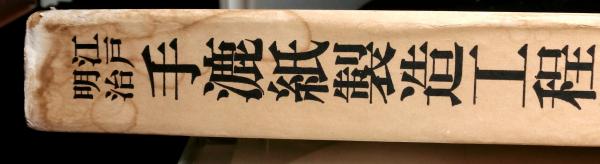 江戸
明治
手漉紙製造工程